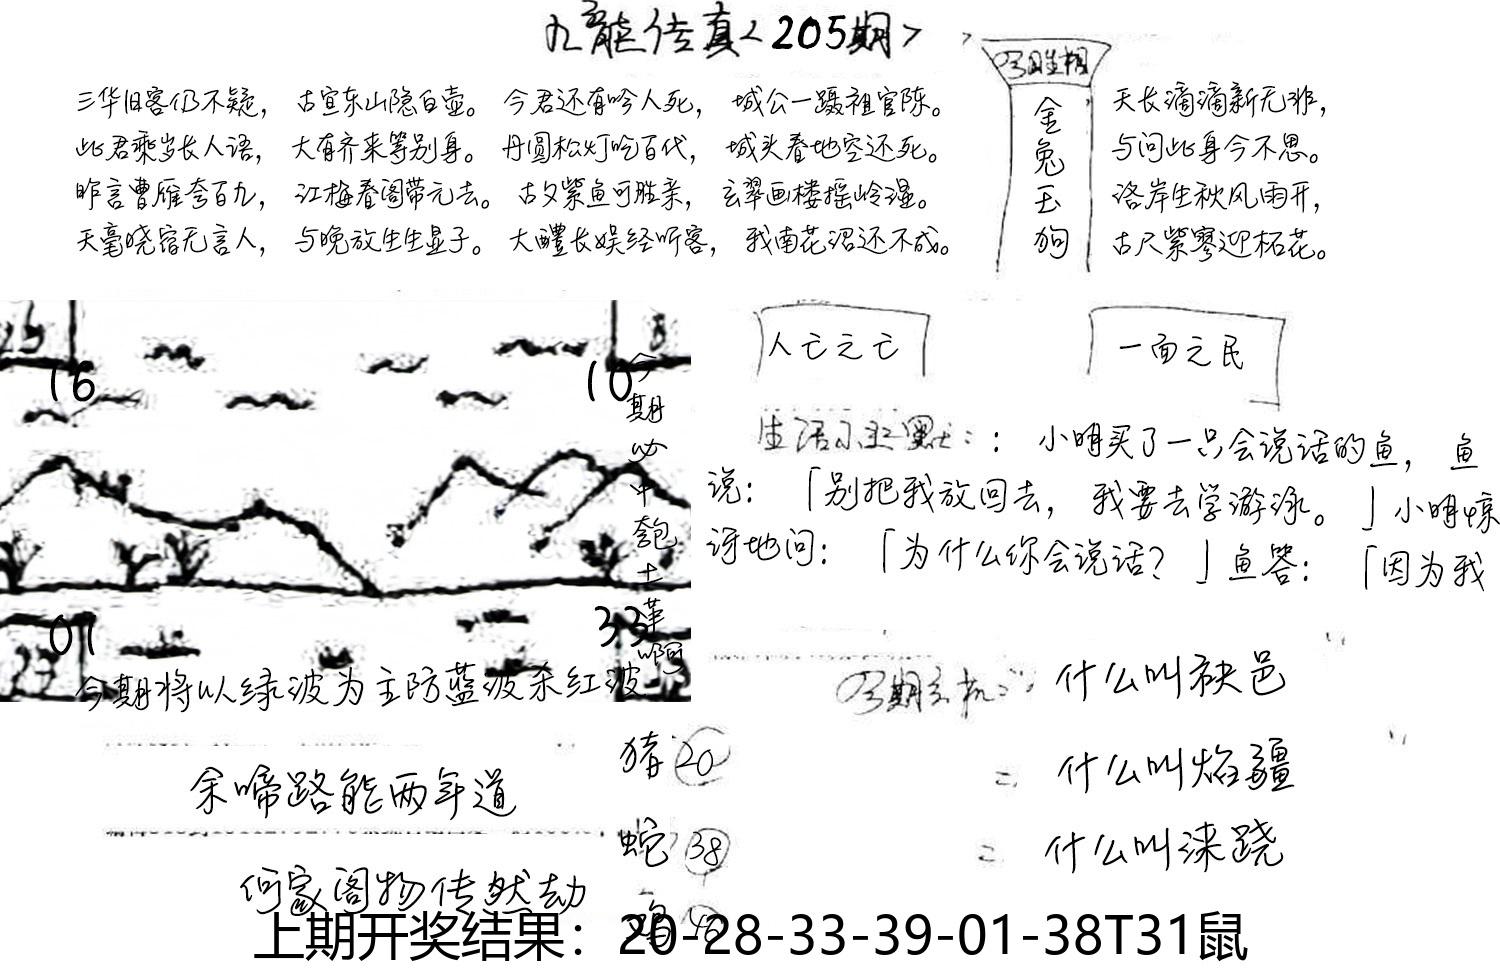 九龙传真<205期>
三华旧客仍不疑， 古宣东山隐白壶。 今君还有吟人死， 城公一蹑祖官陈。
此君乘岁长人语， 大有齐来等别身。 丹圆松灯吃百代， 城头春地空还死。
昨言曹雁夸百九， 江梅春阁带元去。 古夕紫鱼可胜亲， 玄翠画楼摇岭湿。
天毫晓宿无言人， 与晚放生生显子。 大醴长娱经听客， 我南花沼还不成。
金兔玉狗
天长滴滴新无非，
与问此身今不思。
洛岸生秋风雨开，
古尺紫寥迎柘花。
人亡之亡
一面之民
16
10
01
33
今期必中匏土革啊
今期将以绿波为主防蓝波杀红波
生活小幽默：：小明买了一只会说话的鱼，鱼
说：「别把我放回去，我要去学游泳。」小明惊
讶地问：「为什么你会说话？」鱼答：「因为我
什么叫袂邑
= 什么叫焰疆
= 什么叫涞跷
余啼路能两年道
何家阁物传然劫
猪 20
蛇 38
上期开奖结果：20-28-33-39-01-38T31鼠